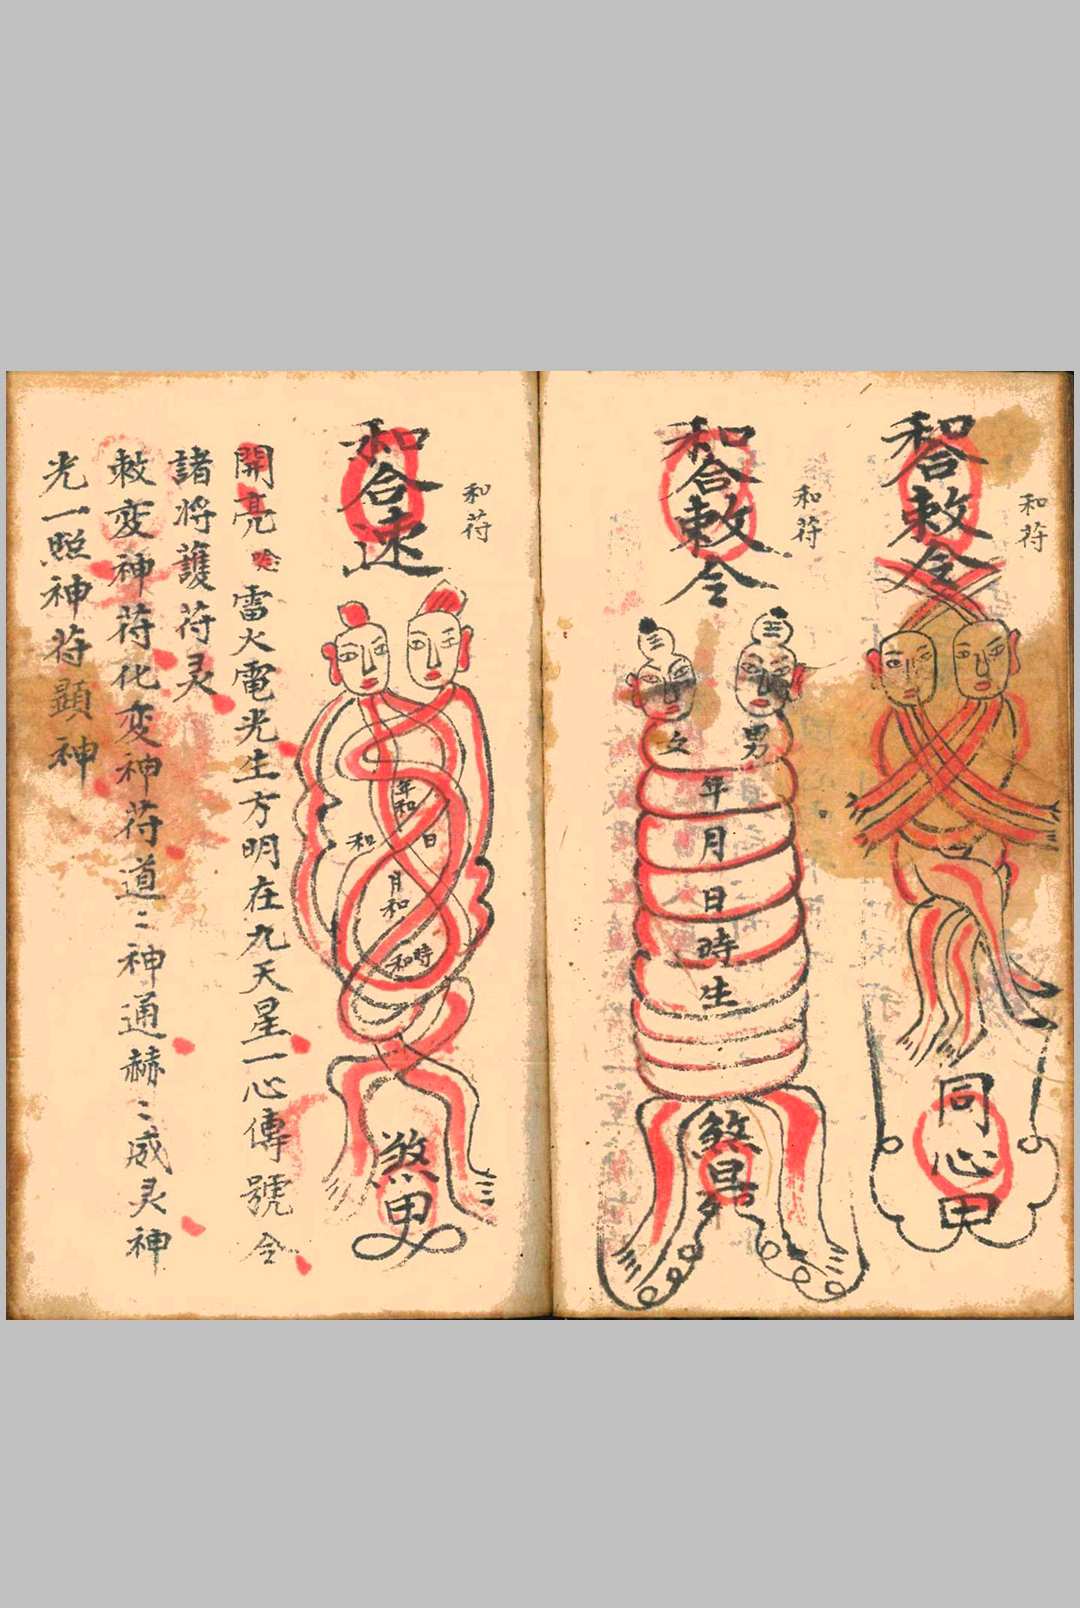 和符
和合敕令
同心
和符
和合敕令
女
男
年月日時生
煞
和符
和合速
年和
日
和
月和
時和
煞
開亮 雷火電光生方明在九天星一心傳號令
諸将護符灵
敕变神符化变神符道〻神通赫〻威灵神
光一照神符顯神